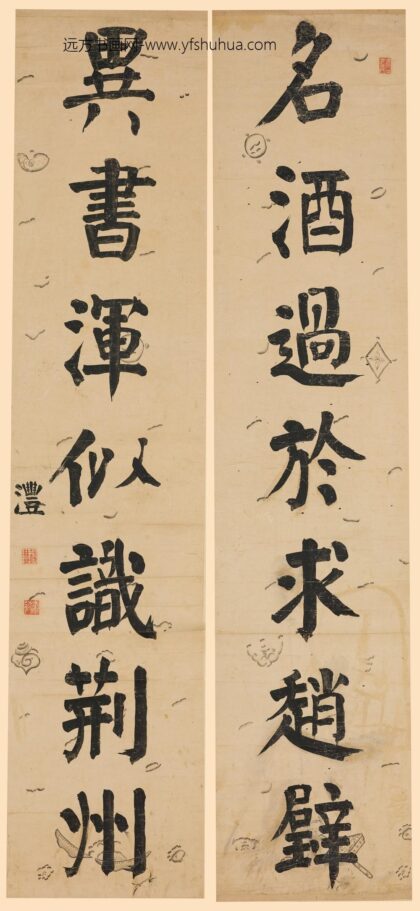 远方书画网-www.yfshuhua.com
名酒過於求趙璧
異書渾似識荆州
灃